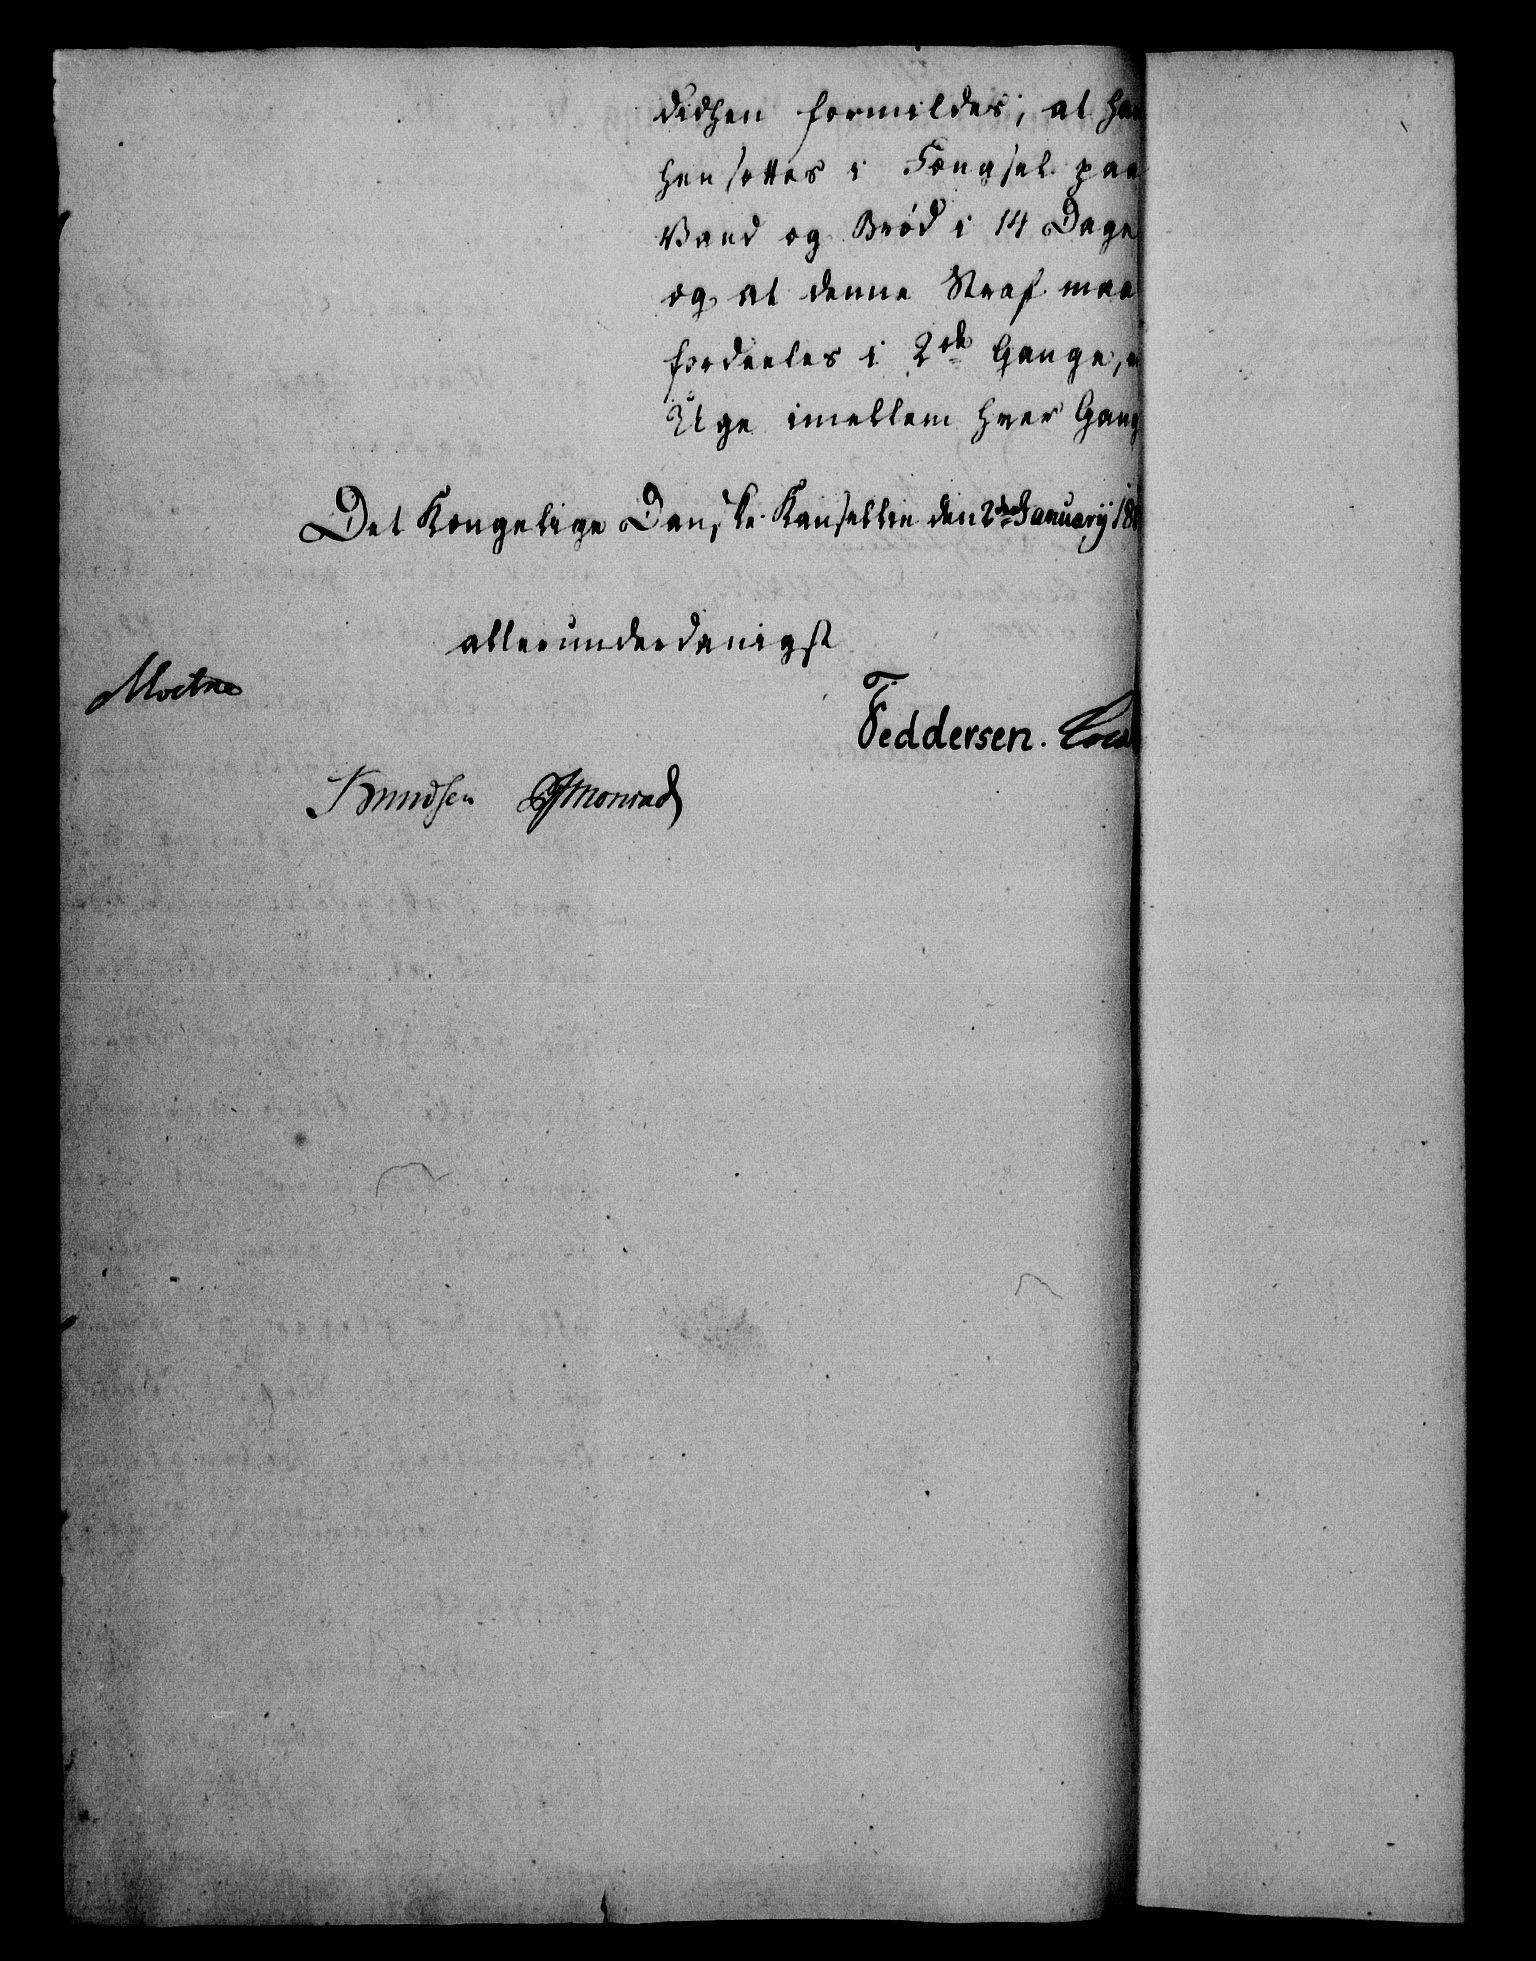 didhen formildes; at
hensættes i Fængsel paa
Vand og Brød i 14 Dage
og at denne Straf maa
fordeeles i 2de Gange,
Uge imellem hver Gang
Det Kongelige Danske Kansellie den 2den Januarij 18
allerunderdanigst
Feddersen.
Knudsen Monrad